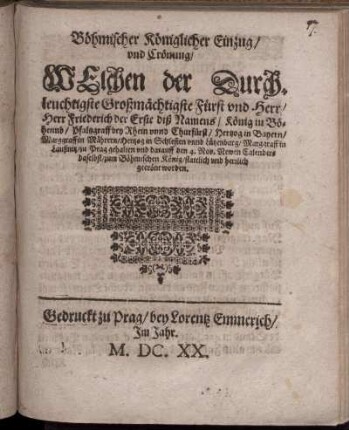 Böhmischer Königlicher Einzug/
vnd Crönung/
WElchen der Durch-
leuchtigste Großmächtigste Fürst vnd Herr/
Herr Friederich der Erste diß Namens/ König in Bö-
hemb/ Pfaltzgraff bey Rhein vnnd Churfürst/ Hertzog in Bayern/
Marggraff in Mährern/ Hertzog in Schlesien vnnd Lützenburg/ Marggraff in
Laußnitz/ zu Prag gehalten vnd darauff den 4. Nov. Newen Calenders
daselbst/ zum Böhmischen König/ stattlich vnd herrlich
gecrönt worden.
Gedruckt zu Prag/ bey Lorentz Emmerich/
Im Jahr.
M. DC. XX.